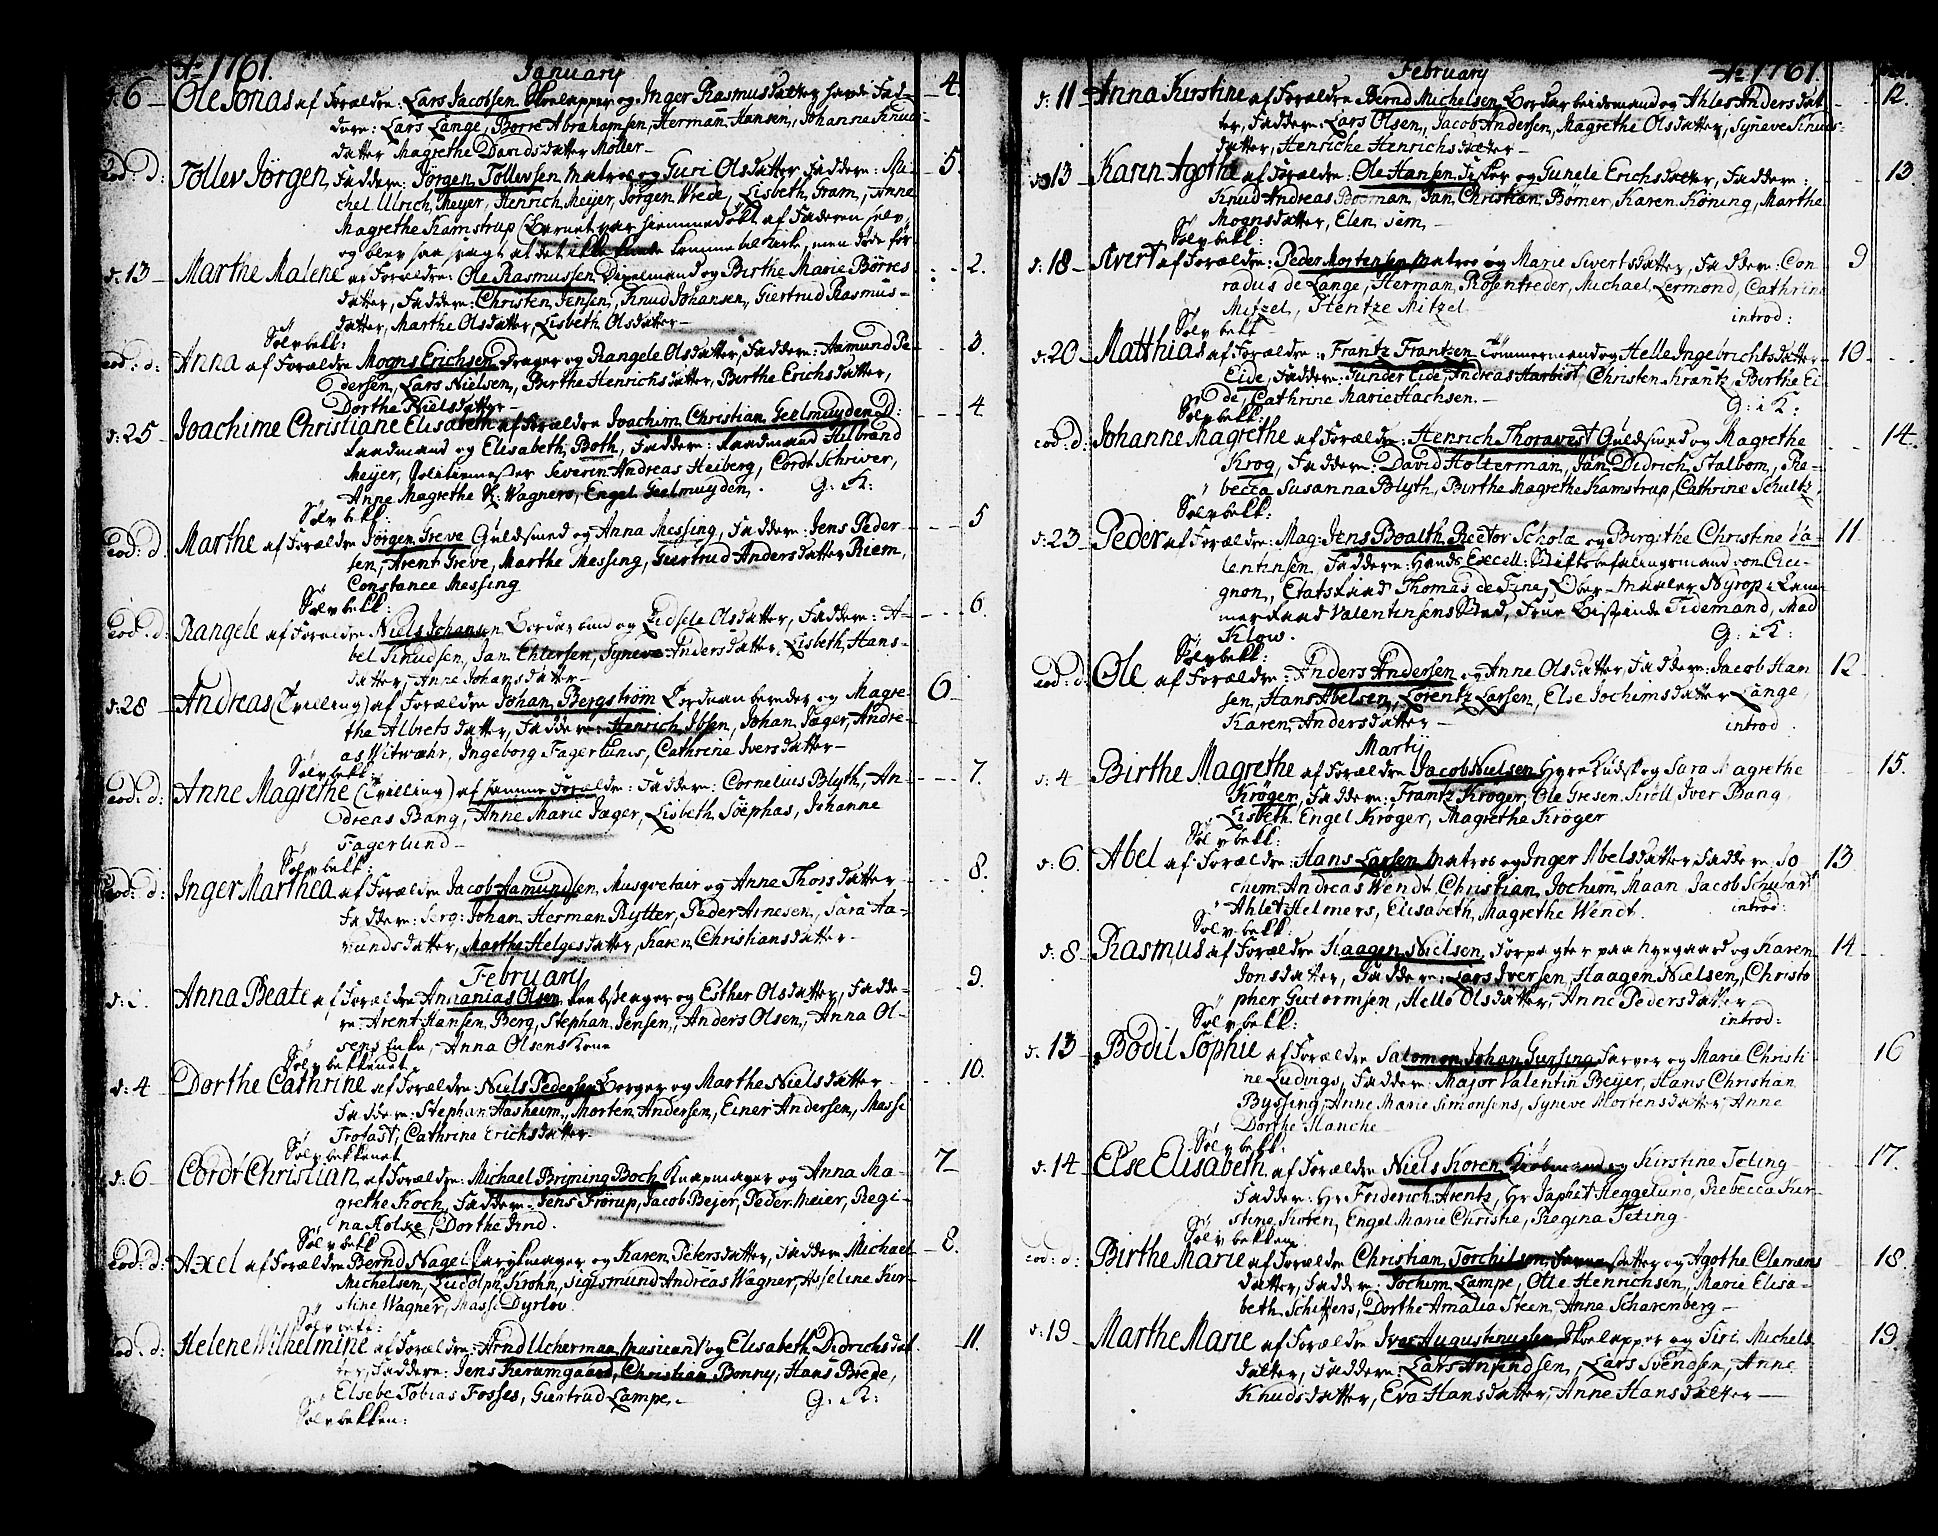 Ao 1761. January
d: 6 Ole Jonas af Forældre: Lars Jacobsen Skoelapper og Inger Rasmusdatter havde Fad- 4.
dere: Lars Lange, Børre Abrahamsen, Herman Hansen, Johanne Knuds-
datter Magrethe Davidsdatter Møller
Eod: d: Tollev Jørgen, Faddere: Jørgen Tollevsen Matros og Guri Olsdatter, Faddere: Mi- 5.
chel Ulrich Meyer, Henrich Meyer, Jørgen Wrede, Lisbeth Fram, Anne
Magrethe Kamstrup (Barnet var hiemmedøbt af Faderen selv,
og blev saa svagt at det ikke kunde komme til Kirke, men døde før
d: 13 Marthe Malene af Forældre: Ole Rasmussen Deyelmand og Birthe Marie Børres 2.
datter, Faddere: Christen Jensen, Knud Johansen, Giertrud Rasmus-
datter, Marthe Olsdatter, Lisbeth Olsdatter
Sølvbekk:
eod: d: Anna af Forældre Mogns Erichsen Drager og Rangele Olsdatter, Faddere: Aamund Pe- 3.
dersen, Lars Nielsen, Birthe Henrichsdatter, Birthe Erichsdatter,
Dorthe Nielsdatter
Sølvbekk:
d: 25 Joachime Christiane Elisabeth af Forældre Joachim Christian Geelmuyden 4
Raadmand og Elisabeth Both, Faddere: Raadmand Hilbrand
Meyer, Politiemester Severin Andreas Heiberg, Cordt Schriver,
Anne Magrethe Wagners, Engel Geelmuyden. G: i K:
Sølvbekk:
Eod: d. Marthe af Forældre Jørgen Greve Guldsmed og Anna Messing, Faddere: Jens Peder- 5
sen, Arent Greve, Marthe Messing, Giertrud Andersdatter Riem,
Constance Messing
Sølvbekk:
Eod: d: Rangele af Forældre Niels Johansen og Zidsele Olsdatter, Faddere: A- 6.
bel Knudsen, Jan Ehlersen, Syneve Andersdatter, Lisbeth Hans-
datter, Anne Johansdatter
d: 28 Andreas (Tvilling) af Forældre Johan Bergstrøm Corduan bereder og Magre- 6
the Albretsdatter, Faddere: Henrich Ibsen, Johan Jager, Andre-
as Witwahr, Ingeborg Fagerlunds, Cathrine Iversdatter
Sølvbekk:
Eod: d: Anne Magrethe (Tvilling) af samme Forældre: Faddere: Cornelius Blyth, An- 7.
dreas Bang, Anne Marie Jager, Lisbeth Søephas, Johanne
Fagerlund
Sølvbekk:
Eod: d: Inger Marthea af Forældre Jacob Aamundsen Musqvetair og Anne Thorsdatter 8.
Faddere: Serg: Johan Herman Rytter, Peder Arnesen, Sara Aa-
mundsdatter, Marthe Helgesdatter, Karen Christiansdatter
February
Anna Beate af Forældre Annanias Olsen og Esther Olsdatter, Fadde- 9.
re: Arent Hansen Berg, Stephan Jensen, Anders Olsen, Anna Ol-
sens Enke, Anna Olsens Kone
Sølvbekkenet
d: 4 Dorthe Cathrine af Forældre: Niels Pedersen Borger og Marthe Nielsdatter 10.
Faddere: Stephan Aasheim, Morten Andersen, Einer Andersen, Masse
Trofast, Cathrine Erichsdatter
Sølvbekkenet
d: 6 Cordt Christian af Forældre: Michael Brüning Boch Knapmager og Anna Ma- 7
grethe Koch, Faddere: Jens Frørup, Jacob Beyer, Peder Meier, Regi-
na Kolske, Dorthe Arnd.
Sølvbekk
Eod: d: Axel af Forældre Bernd Nagel Parykmager og Karen Petersdatter, Faddere Michael 8.
Michelsen, Ludolph Krohn, Sigismund Andreas Wagner, Asseline Kir-
stine Wagner, Masse Dyrlov.
Sølvbekk:
eod: d: Helene Wilhelmine af Forældre: Arnd Ucherman Musicant og Elisabeth Didrichsdat- 11.
ter, Faddere: Jens Karamgaard, Christian Bonny, Hans Brede,
Elsebe Tobias Fosses, Giertrud Lampe. G: i K:
Sølvbekken:
February Ao 1761.
d: 11 Anna Kirstine af Forældre Bernd Michelsen Bordarbeidsmand og Ahles Andersdat- 12.
ter, Faddere: Lars Olsen, Jacob Andersen, Magrethe Olsdatter, Syneve Knuds-
datter, Henriche Henrichsdatter
d: 13 Karen Agothe af Forældre: Ole Hansen Fisker og Gunele Erichsdatter, Faddere: 13.
Knud Andreas Boorman, Jan Christian Børner, Karen Køning, Marthe
Mognsdatter, Elen Sem
Sølvbekk:
d: 18 Sivert af Forældre: Peder Mortensen Matros og Marie Sivertsdatter, Faddere: Con- 9
radus de Lange, Herman Rosentreder, Michael Lermond, Cathrine
Mitzel, Hentze Mitzel
Sølvbekk introd:
d: 20 Matthias af Forældre: Frantz Frantzen Tømmermand og Helle Ingebrichtsdatter 10
Eide, Faddere: Gunder Eide, Andreas Harbist, Christen Krantz, Birthe Ei-
de, Cathrine Marie Hachsen. G: i K:
Sølvbekk:
eod: d: Johanne Magrethe af Forældre: Henrich Thoravest Guldsmed og Magrethe 14.
Krog, Faddere: David Holterman, Jan Didrich Stalbom, Re-
becca Susanna Blyth, Birthe Magrethe Kamstrup, Cathrine Schultz.
Sølvbekk:
d: 23 Peder af Forældre: Mag: Jens Boalth Rector Scholæ og Birgithe Christine Va- 11
lentinsen, Faddere: Hands Excell: Stiftsbefalingsmand von Cicig-
non, Etatsraad Thomas de Fine, Ober-Maaler Nyrop i Kam-
merraad Valentinsens Sted, Frue Tidemand, Mad
Klow. G: i K:
Sølvbekk:
eod: d: Ole af Forældre: Anders Andersen og Anne Olsdatter, Faddere: Jacob Han- 12
sen, Hans Abelsen, Lorentz Larsen, Else Jochimsdatter Lange,
Karen Andersdatter introd:
Martij
d: 4 Birthe Magrethe af Forældre Jacob Nielsen Hyrekudsk og Sara Magrethe 15.
Krøger, Faddere: Frantz Krøger, Ole Gresen Kroll, Iver Bang,
Lisbeth Engel Krøger, Magrethe Krøger
Sølvbekk:
d: 6 Abel af Forældre: Hans Larsen Matros og Inger Abelsdatter Faddere: Jo 13
chem Andreas Wendt, Christian Jochim Maan, Jacob Schubart
Ahlet Helmers, Elisabeth Magrethe Wendt. introd:
Sølvbekk:
d: 8 Rasmus af Forældre Haagen Nielsen Forpagter paa Nyegaard og Karen 14
Jonsdatter, Faddere: Lars Iversen, Haagen Nielsen, Christo
pher Guttormsen, Helle Olsdatter, Anne Pedersdatter
Sølvbekk: introd:
d: 13 Bodil Sophie af Forældre Salomon Johan Gersing Farver og Marie Christi 16
ne Ludings, Faddere: Major Valentin Beyer, Hans Christian
Byssing, Anne Marie Simonsens, Syneve Mortensdatter, Anne
Dorthe Hanche
Sølvbekk:
d: 14 Else Elisabeth af Forældre Niels Koren Kiøbmand og Kirstine Teting 17.
Faddere: Hr Friderich Arentz, Hr Japhet Heggelund, Rebecca Kir-
stine Koren, Engel Marie Christie, Regina Teting
Sølvbekken
eod: d: Birthe Marie af Forældre Christian Torchilsen og Agothe Clemens 18.
datter, Faddere: Jochim Lampe, Otte Henrichsen, Marie Elisa-
beth Schiffers, Dorthe Amalia Steen, Anne Scharenberg
d: 19 Marthe Marie af Forældre Iver Augustinusen Skoelapper og Siri Michels 19.
datter, Faddere: Lars Anfindsen, Lars Svendsen, Anne
Knudsdatter, Eva Hansdatter, Anne Hansdatter